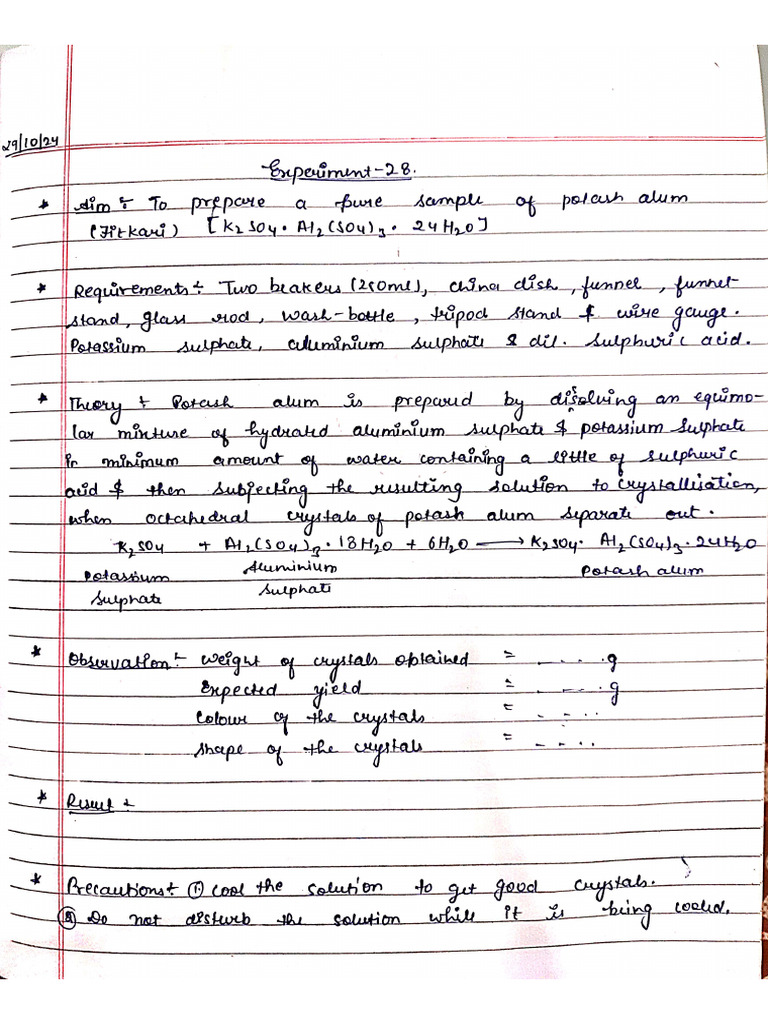 29/10/24
Experiment-28.
* Aim :- To prepare a pure sample of potash alum
(Fitkari) [K2SO4 · Al2(SO4)3 · 24H2O]
* Requirements :- Two beakers (250ml), china dish, funnel, funnel-
stand, glass rod, wash-bottle, tripod stand & wire gauge.
Potassium sulphate, aluminium sulphate & dil. sulphuric acid.
* Theory :- Potash alum is prepared by dissolving an equimo-
lar mixture of hydrated aluminium sulphate & potassium sulphate
in minimum amount of water containing a little of sulphuric
acid & then subjecting the resulting solution to crystallisation,
when octahedral crystals of potash alum separate out.
K2SO4 + Al2(SO4)3 · 18H2O + 6H2O ⟶ K2SO4 · Al2(SO4)3 · 24H2O
Potassium Aluminium Potash alum
Sulphate Sulphate
* Observation :- Weight of crystals obtained = - ... .g
Expected yield = - ... .g
Colour of the crystals = - - ...
Shape of the crystals = - - ...
* Result :-
* Precautions :- ① Cool the solution to get good crystals.
② Do not disturb the solution while it is being cooled.